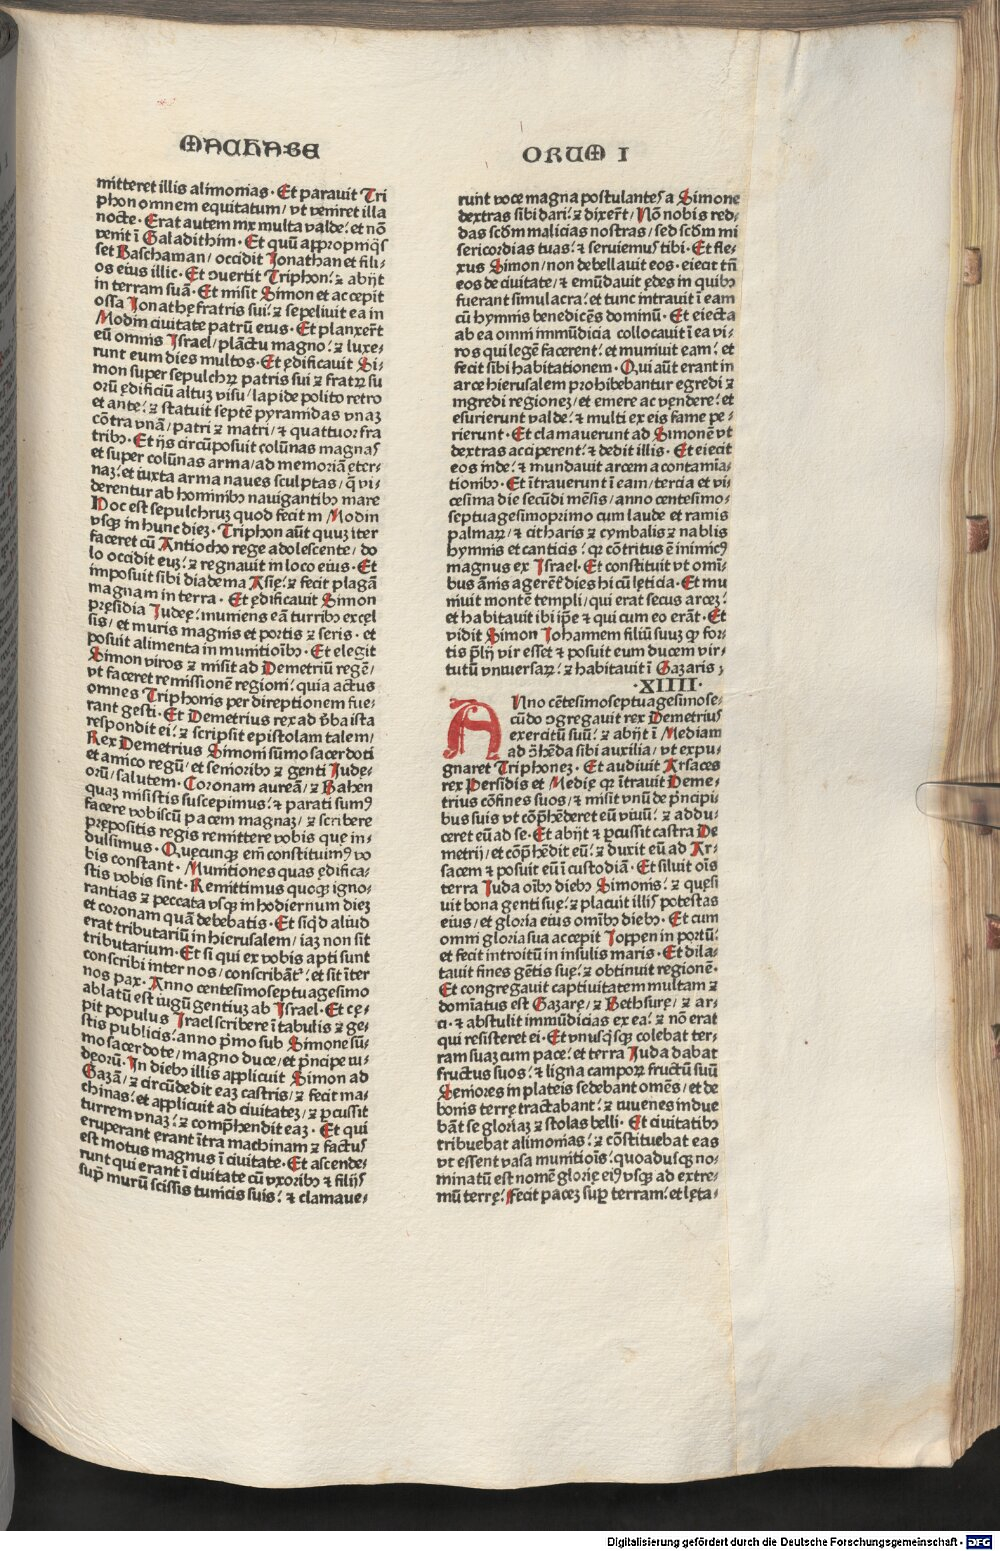 MACHABE
ORUM I
mitteret illis alimonias · Et paravit Tri
phon omnem equitatum / vt veniret illa
nocte · Erat autem nix multa valde: et nõ
venit ĩ Galadithim · Et quũ appropinq̃s
set Baschaman / occidit Jonathan et fili⸗
os eius illic · Et ꝯuertit Triphon: ⁊ abijt
in terram suã · Et misit Simon et accepit
ossa Jonathę fratris sui: ⁊ sepeliuit ea in
Modin ciuitate patrũ eius · Et planxer̃t
eũ omnis Israel / plãctu magno: ⁊ luxe⸗
runt eum dies multos · Et ędificauit Si⸗
mon super sepulchrꝝ patris sui ⁊ fratrꝝ su
orũ ędificiũ altuʒ visu / lapide polito retro
et ante: ⁊ statuit septẽ pyramidas vnaʒ
cõtra vnã / patri ⁊ matri / ⁊ quattuor fra
tribꝰ · Et ijs circũposuit colũnas magnas
et super colũnas arma / ad memoriã ęter⸗
naʒ: et iuxta arma naues sculptas / q̃ vi⸗
derentur ab hominibꝰ nauigantibꝰ mare
Hoc est sepulchruʒ quod fecit in Modin
vsqʒ in hunc dieʒ · Triphon aũt quuʒ iter
faceret cũ Antiocho rege adolescente / do
lo occidit euʒ: ⁊ regnauit in loco eius · Et
imposuit sibi diadema Asię: ⁊ fecit plagã
magnam in terra · Et ędificauit Simon
pręsidia Judeę: muniens eã turribꝰ excel
sis / et muris magnis et portis ⁊ seris · et
posuit alimenta in munitiõibꝰ · Et elegit
Simon viros ⁊ misit ad Demetriũ regẽ /
vt faceret remissionẽ regioni: quia actus
omnes Triphonis per direptionem fue⸗
rant gesti · Et Demetrius rex ad v̾ba ista
respondit ei: ⁊ scripsit epistolam talem /
Rex Demetrius Simoni sũmo sacerdoti
et amico regũ / et senioribꝰ ⁊ genti Judę⸗
orũ / salutem · Coronam aureã / ⁊ Bahen
quaʒ misistis suscepimus: ⁊ parati sumꝰ
facere vobiscũ pacem magnaʒ / ⁊ scribere
prępositis regis remittere vobis quę in⸗
dulsimus · Quęcunqʒ em̃ constituimꝰ vo
bis constant · Munitiones quas ędifica⸗
stis vobis sint · Remittimus quoqʒ igno⸗
rantias ⁊ peccata vsqʒ in hodiernum dieʒ
et coronam quã debebatis · Et siq̃d aliud
erat tributariũ in hierusalem / iaʒ non sit
tributarium · Et si qui ex vobis apti sunt
conscribi inter nos / conscribãt̃: et sit ĩter
nos pax · Anno centesimoseptuagesimo
ablatũ est iugũ gentiuʒ ab Israel · Et cę⸗
pit populus Israel scribere ĩ tabulis ⁊ ge⸗
stis publicis: anno p̃mo sub Simone sũ⸗
mo sacerdote / magno duce / et p̃ncipe iu⸗
deorũ · In diebꝰ illis applicuit Simon ad
Gazã / ⁊ circũdedit eaʒ castris / ⁊ fecit ma⸗
chinas: et applicuit ad ciuitateʒ / ⁊ ꝑcussit
turrem vnaʒ: ⁊ comp̃hendit eaʒ · Et qui
eruperant erant ĩtra machinam ⁊ factus
est motus magnus ĩ ciuitate · Et ascende⸗
runt qui erant ĩ ciuitate cũ vxoribꝰ ⁊ filijs
sup̃ murũ scissis tunicis suis: ⁊ clamaue⸗
runt voce magna postulantes a Simone
dextras sibi dari: ⁊ dixer̃t / Nõ nobis red⸗
das scd̃m malicias nostras / sed scd̃m mi
sericordias tuas: ⁊ seruiemus tibi · Et fle⸗
xus Simon / non debellauit eos · eiecit tñ
eos de ciuitate / ⁊ emũdauit ędes in quibꝰ
fuerant simulacra: et tunc intrauit ĩ eam
cũ hymnis benedicẽs dominũ · Et eiecta
ab ea omni immũdicia collocauit ĩ ea vi⸗
ros qui legẽ facerent: et muniuit eam: et
fecit sibi habitationem · Qui aũt erant in
arce hierusalem prohibebantur egredi ⁊
ingredi regioneʒ / et emere ac vęndere: et
esurierunt valde: ⁊ multi ex eis fame pe⸗
rierunt · Et clamauerunt ad Simonẽ vt
dextras acciperent: ⁊ dedit illis · Et eiecit
eos inde: ⁊ mundauit arcem a contamĩa⸗
tionibꝰ · Et ĩtrauerunt ĩ eam / tercia et vi⸗
cesima die secũdi mẽsis / anno centesimo⸗
septuagesimoprimo cum laude et ramis
palmarꝝ / ⁊ citharis ⁊ cymbalis ⁊ nablis
hymnis et canticis: qʒ cõtritus ẽ inimicꝰ
magnus ex Israel · Et constituit vt omi⸗
bus ãnis ageren̾t dies hi cũ lęticia · Et mu
niuit montẽ templi / qui erat secus arceʒ:
et habitauit ibi ip̃e ⁊ qui cum eo erãt · Et
vidit Simon Johannem filiũ suuʒ qʒ for⸗
tis p̃lij vir esset ⁊ posuit eum ducem vir⸗
tutũ vniuersarꝝ: ⁊ habitauit ĩ Gazaris ;
·XIIII·
ANno cẽtesimoseptuagesimose⸗
cũdo ꝯgregauit rex Demetrius
exercitũ suũ: ⁊ abijt ĩ Mediam
ad ꝯ̾hẽda sibi auxilia / vt expu⸗
gnaret Triphoneʒ · Et audiuit Arsaces
rex Persidis et Medię qʒ ĩtrauit Deme⸗
trius cõfines suos / ⁊ misit vnũ de p̃ncipi⸗
bus suis vt cõp̃hẽderet eũ viuũ: ⁊ addu⸗
ceret eũ ad se · Et abijt ⁊ ꝑcussit castra De
metrij / et cõp̃hẽdit eũ: ⁊ duxit eũ ad Ar⸗
sacem ⁊ posuit eũ ĩ custodiã · Et siluit oĩs
terra Juda oĩbꝰ diebꝰ Simonis: ⁊ quęsi
uit bona genti suę: ⁊ placuit illis potestas
eius / et gloria eius omĩbꝰ diebꝰ · Et cum
omni gloria sua accepit Joppen in portũ:
et fecit introitũ in insulis maris · Et dila⸗
tauit fines gẽtis suę: ⁊ obtinuit regionẽ ·
Et congregauit captiuitatem multam ⁊
domĩatus est Gazarę / ⁊ Bethsurę / ⁊ ar⸗
ci · ⁊ abstulit immũdicias ex ea: ⁊ nõ erat
qui resisteret ei · Et vnusq̃sqʒ colebat ter⸗
ram suaʒ cum pace: et terra Juda dabat
fructus suos: ⁊ ligna camporꝝ fructũ suũ
Seniores in plateis sedebant omẽs / et de
bonis terrę tractabant: ⁊ iuuenes indue
bãt se gloriaʒ ⁊ stolas belli · Et ciuitatibꝰ
tribuebat alimonias: ⁊ cõstituebat eas
vt essent vasa munitiõis: quoadusqʒ no⸗
minatũ est nomẽ glorię eiꝰ vsqʒ ad extre⸗
mũ terrę: Fecit paceʒ sup̃ terram: et lęta⸗
Digitalisierung gefördert durch die Deutsche Forschungsgemeinschaft - DFG